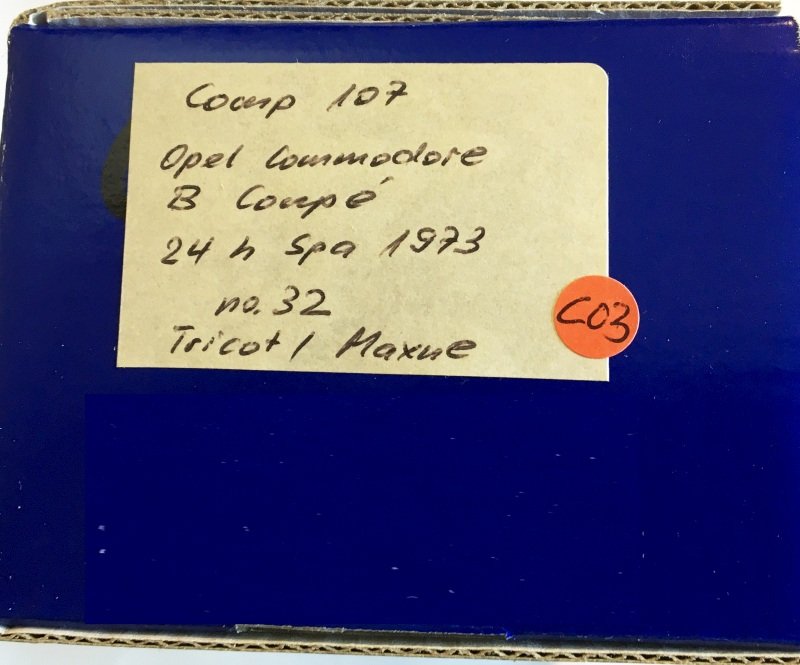 Comp 107
Opel Commodore
B Coupé
24 h Spa 1973
no. 32
Tricot / Maxne
C03